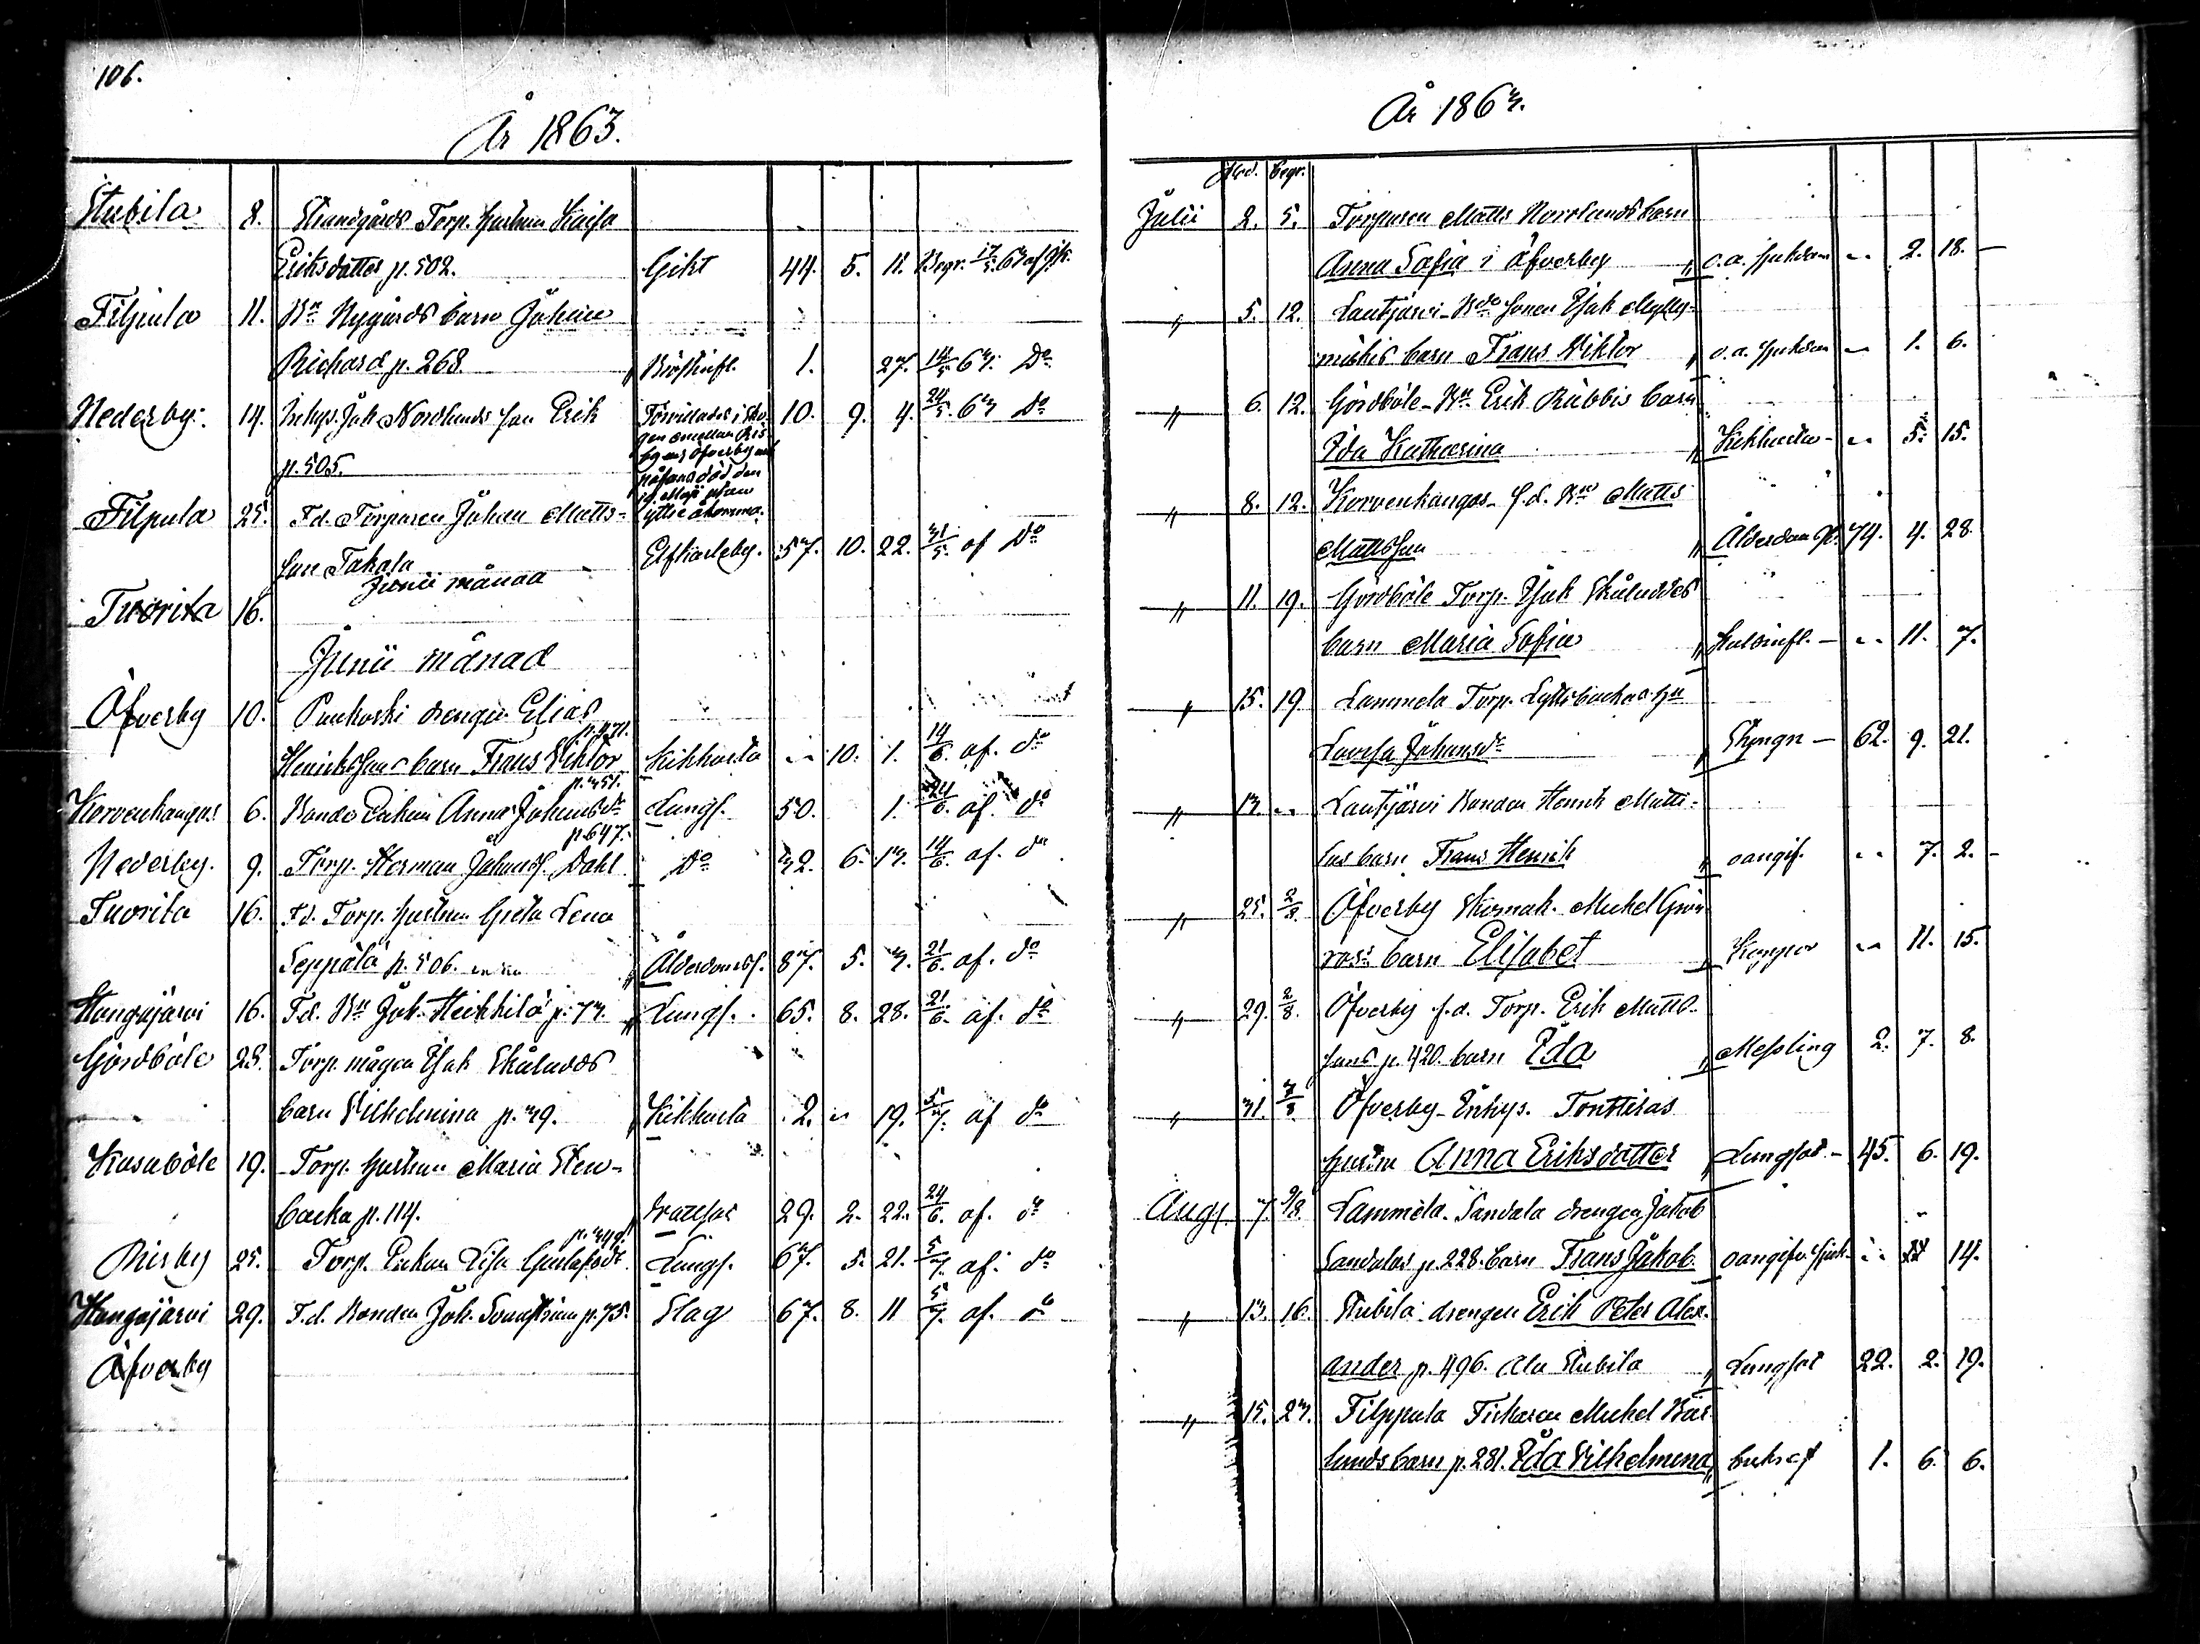 106.
År 1863.
Stubila 8. Strandgårds Torp. hustrun Kaisa
Eriksdotter p. 502. Gikt 44. 5. 11. Begr. 17/5. 63 af
Filpula 11. Bn Nygårds barn Johan
Richard p. 268. Bröstinfl. 1. 27. 14/5 63. Do
Nederby. 14. Inhys. Joh. Nordlunds son Erik Förvillades i sko- 10. 9. 4. 24/5. 63 Do
gen emellan Ris
by och Öfverby och
p. 505. påfans död den
19. Maji utan
Filpula 25. F.d. Torparen Johan Matts- yttre åkomma.
son Takala Elfkarleby. 57. 10. 22. 31/5. af Do
Junii månad
Tuorila 16.
Junii månad
Öfverby 10. Puukoski drengen Elias
Henrikssons barn Frans Viktor Kikhosta " 10. 1. 14/6. af. do
p. 451.
Korvenkangas 6. Bonde Enkan Anna Johansdr Lungs. 50. 1. 24/6. af. do
p. 647.
Nederby. 9. Torp. Herman Johans. Dahl Do 32. 6. 13. 14/6. af. do
Tuorila 16. F.d. Torp. hustrun Greta Lena
Seppälä p. 506. Ålderdomss. 87. 5. 3. 21/6. af. do
Hangajärvi 16. F.d. Bn Joh. Heikkilä p. 73. Lungs. 65. 8. 28. 21/6. af. do
Gördböle 28. Torp. mågen Isak Skåludds
barn Vilhelmina p. 39. Kikhosta 2. " 19. 5/7. af do
Kasaböle 19. Torp. hustrun Maria Sten-
backa p. 114. 29. 2. 22. 24/6. af. do
p. 349.
Risby 25. Torp. Enkan Lisa Gustafsdr. Lungs. 67. 5. 21. 5/7. af. do
Hangajärvi 29. F.d. Bonden Joh. p. 75. Slag 67. 8. 11 5/7. af. do
Öfverby
År 1863.
död. begr.
Julii 2. 5. Torparen Matts Norrlunds barn
Anna Sofia i Öfverby o.a. sjukdom " 2. 18.
" 5. 12. Lautjärvi Bde sonen Isak Mylly-
mäkis barn Frans Viktor o.a. sjukdom " 1. 6.
" 6. 12. Gördböle Bn Erik Rabbis barn
Ida Katharina Kikhosta " 5. 15.
" 8. 12. Korvenkangas f.d. Bn Matts
Mattsson Ålderdom 74. 4. 28.
" 11. 19. Gördböle Torp. Isak Skåludds
barn Maria Sofia Halsinfl. " 11. 7.
" 15. 19. Lammela Torp. Lyttsbackas hu
Lovisa Johansdr 62. 9. 21.
" 13. " Lautjärvi Bonden Henrik Matts-
sons barn Frans Henrik oangif. " 7. 2.
" 25. 2/8. Öfverby Skomak. Mickel Grön
roos barn Elisabet Koppor " 11. 15.
" 29. 2/8. Öfverby f.d. Torp. Erik Matts-
sons p. 420. barn Ida Messling 2. 7. 8.
" 31. 2/8 Öfverby Inhys. Tonttilas
hustru Anna Eriksdotter Lungsot 45. 6. 19.
Aug. 7. 9/8. Lammela Sandala drengen Jakob
Sandalas p. 228. barn Frans Jakob. oangifv. sjuk. " 14.
" 13. 16. Stubila drengen Erik Peter Alex-
ander p. 496. Ala Stubila Lungsot 22. 2. 19.
" 15. 23. Filppula Fiskaren Mickel Bäs-
lunds barn p. 281. Ida Vilhelmina 1. 6. 6.